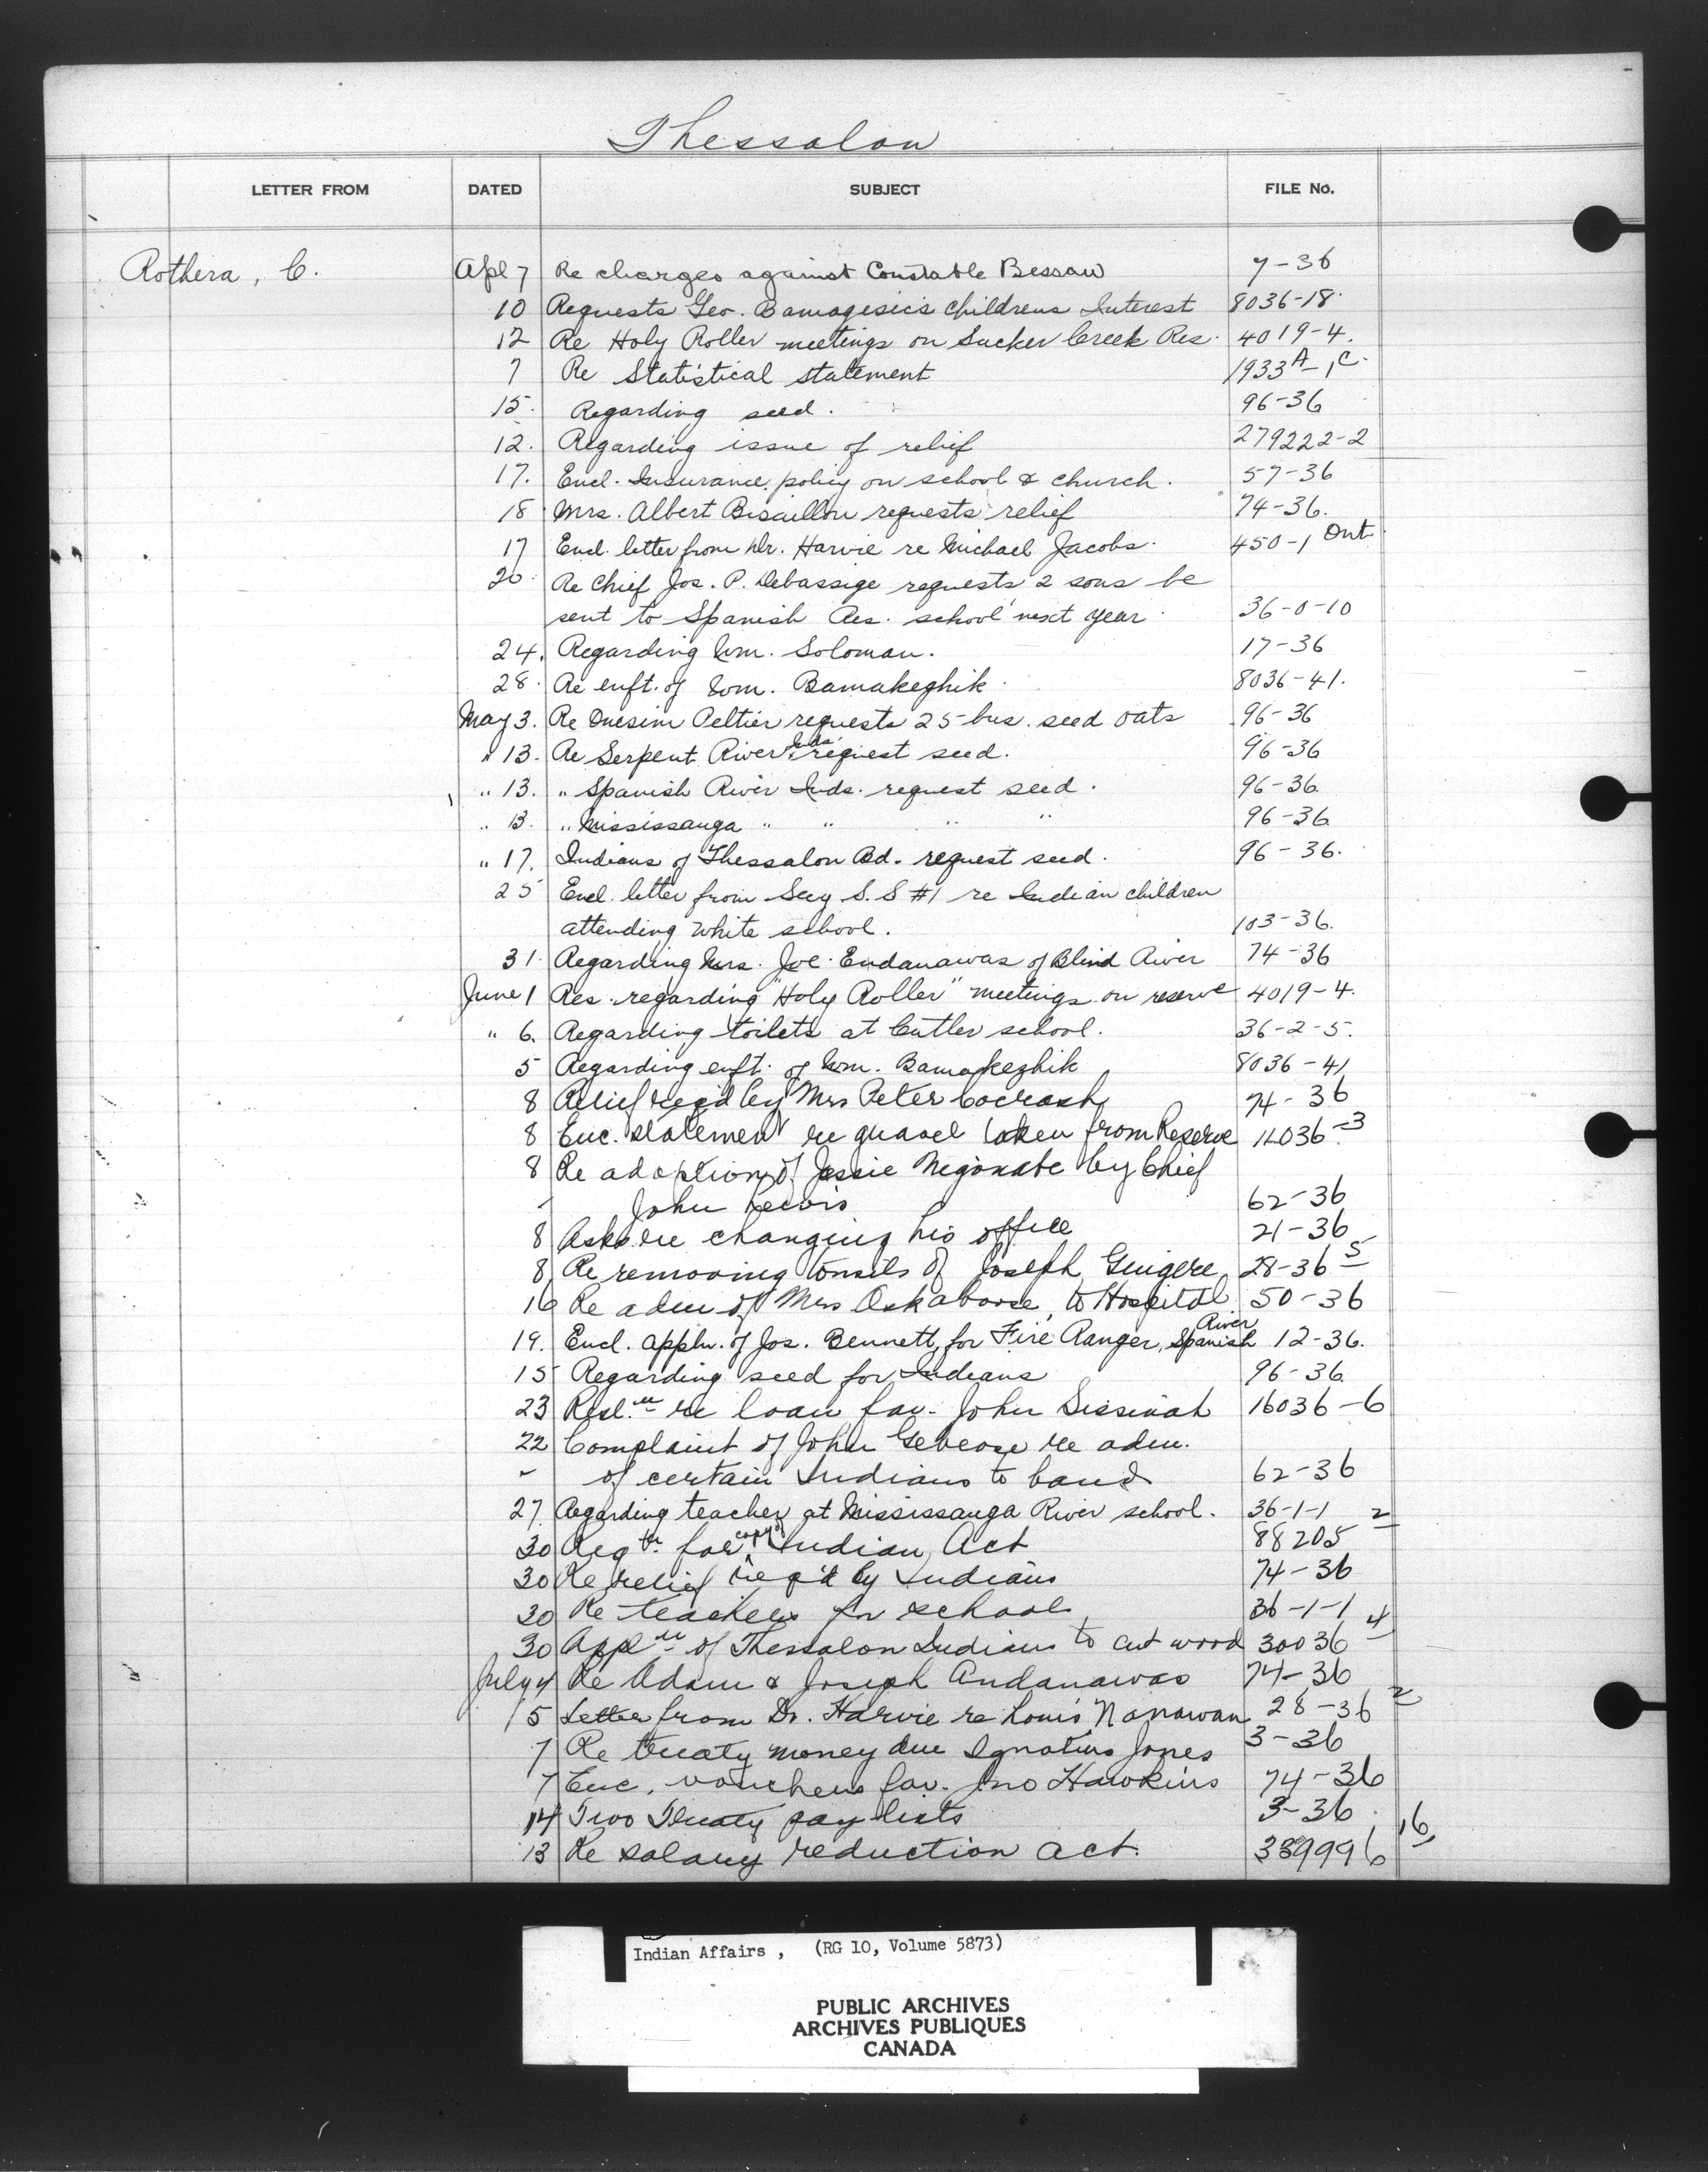 Thessalon
LETTER FROM DATED SUBJECT FILE No.
Rothera, C. Apl 7 Re charges against Constable Bessaw 7-36
10 Requests Geo. Bamagesic's childrens Interest 8036-18
12 Re Holy Roller meetings on Sucker Creek Res. 4019-4.
7 Re Statistical statement 1933A-1C
15. Regarding seed. 96-36
12. Regarding issue of relief 279222-2
17. Encl. Insurance policy on school & church. 57-36
18 Mrs. Albert Bisaillon requests relief 74-36.
17 Encl. letter from Dr. Harvie re Michael Jacobs. 450-1 Ont.
20. Re Chief Jos. P. Debassige requests 2 sons be
sent to Spanish Res. school next year. 36-0-10
24. Regarding Wm. Soloman. 17-36
28. Re enft. of Wm. Bamakeghik. 8036-41.
May 3. Re Onesim Peltier requests 25 bus. seed oats 96-36
" 13. Re Serpent River Inds. request seed. 96-36
" 13. " Spanish River Inds. request seed. 96-36.
" 13. " Mississauga " " " " 96-36.
" 17. Indians of Thessalon Bd. request seed. 96-36.
25 Encl. letter from Secy S.S #1 re Indian children
attending white school. 103-36.
31. Regarding Mrs. Joe Endanawas of Blind River 74-36
June 1 Res. regarding "Holy Roller" meetings on reserve 4019-4.
" 6. Regarding toilets at Cutler school. 36-2-5.
5 Regarding enft. of Wm. Bamakeghik 8036-41
8 Relief req'd by Mrs Peter 74-36
8 Enc. statement re gravel taken from Reserve 11036-3
8 Re adoption of Jessie Negonabe by Chief
John Lewis 62-36
8 Asks re changing his office 21-36
8 Re removing tonsils of Joseph Guigere 28-36 5
16 Re adm of Mrs Askaboose to Hospital 50-36
19. Encl. appln. of Jos. Bennett, for Fire Ranger, Spanish River 12-36.
15 Regarding seed for Indians 96-36.
23 Resl.n re loan fav. John Sissinah 16036-6
22 Complaint of John re adm.
" of certain Indians to band 62-36
27. Regarding teacher at Mississauga River school. 36-1-1
30 Req for copy of Indian Act 88205 2
30 Re relief req'd by Indians 74-36
30 Re teachers for school 36-1-1
30 Appl.n of Thessalon Indians to cut wood 30036 4
July 4 Re Adam & Joseph Andanawas 74-36
5 Letter from Dr. Harvie re Louis Nanawan 28-36 2
7 Re treaty money due Ignatius Jones 3-36
7 Enc. vouchers fav. Jno Hawkins 74-36
14 Two Treaty pay lists 3-36
13 Re salary reduction act. 339996 16
Indian Affairs, (RG 10, Volume 5873)
PUBLIC ARCHIVES
ARCHIVES PUBLIQUES
CANADA